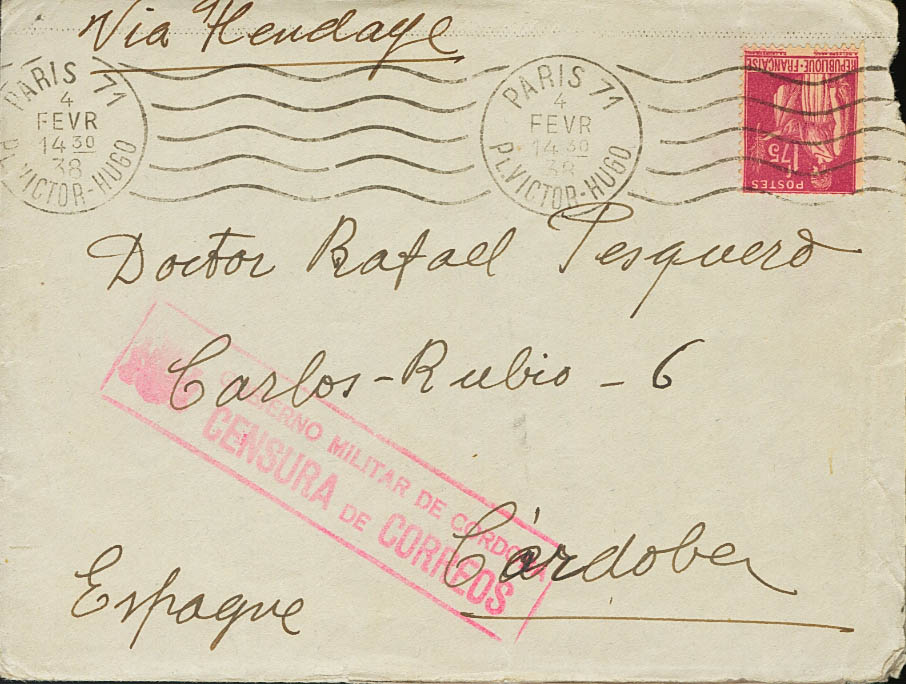 Via Hendaye
PARIS 71
4
FEVR
14 30
38
Pl. VICTOR-HUGO
PARIS 71
4
FEVR
14 30
38
Pl. VICTOR-HUGO
REPUBLIQUE-FRANÇAISE
1F75
POSTES
Doctor Rafael Pesquero
Carlos-Rubio - 6
GOBIERNO MILITAR DE CORDOBA
CENSURA DE CORREOS
Córdoba
Espagne